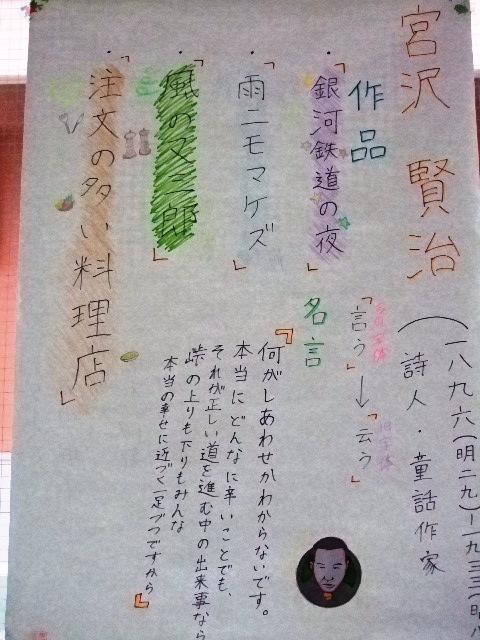 宮沢 賢治
(一八九六(明二九)ー一九三三(昭八
詩人・童話作家
作品
・「銀河鉄道の夜」
・「雨ニモマケズ」
・「風の又三郎」
・「注文の多い料理店」
「言う」→「云う」
名言
「何がしあわせかわからないです。
本当にどんなに辛いことでも、
それが正しい道を進む中の出来事なら
峠の上りも下りもみんな
本当の幸せに近づく一足づつですから」